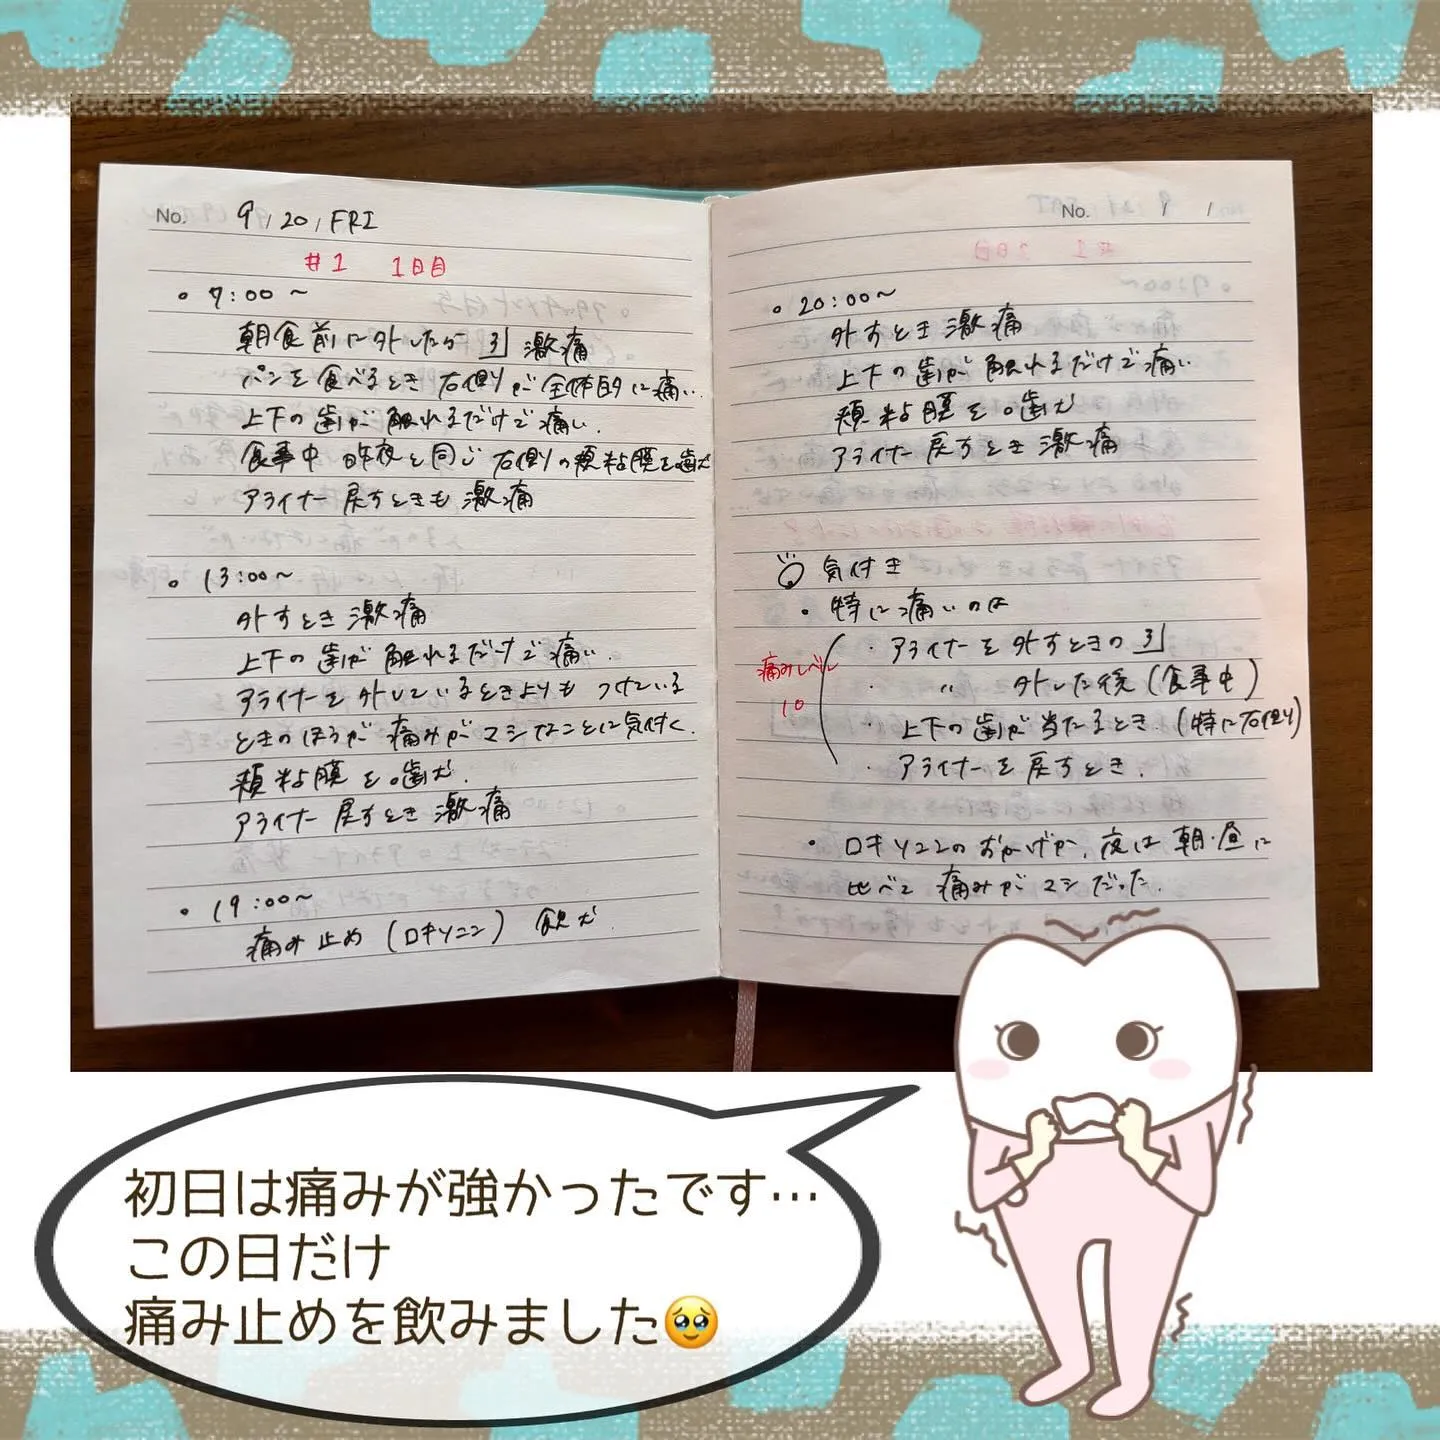 No. 9/20/FRI
#1 1日目
• 7:00〜
朝食前に外したら 3」激痛
パンを食べるとき 右側が全体的に痛い.
上下の歯が 触れるだけで痛い.
食事中 昨夜と同じ 右側の頬粘膜を噛む
アライナー 戻すときも 激痛
• 13:00〜
外すとき 激痛
上下の歯が 触れるだけで痛い.
アライナーを外しているときよりも つけている
ときのほうが 痛みがマシなことに気付く.
頬粘膜を噛む.
アライナー 戻すとき 激痛
• 19:00〜
痛み止め (ロキソニン) 飲む
No. / /
• 20:00〜
外すとき 激痛
上下の歯が 触れるだけで痛い
頬粘膜を噛む
アライナー 戻すとき 激痛
気付き
• 特に痛いのは
痛みレベル
10
・アライナーを外すときの 3」
・ 〃 外した後 (食事中)
・上下の歯が当たるとき. (特に右側)
・アライナーを戻すとき.
• ロキソニンのおかげか、夜は朝・昼に
比べて 痛みがマシだった.
初日は痛みが強かったです…
この日だけ
痛み止めを飲みました🥹